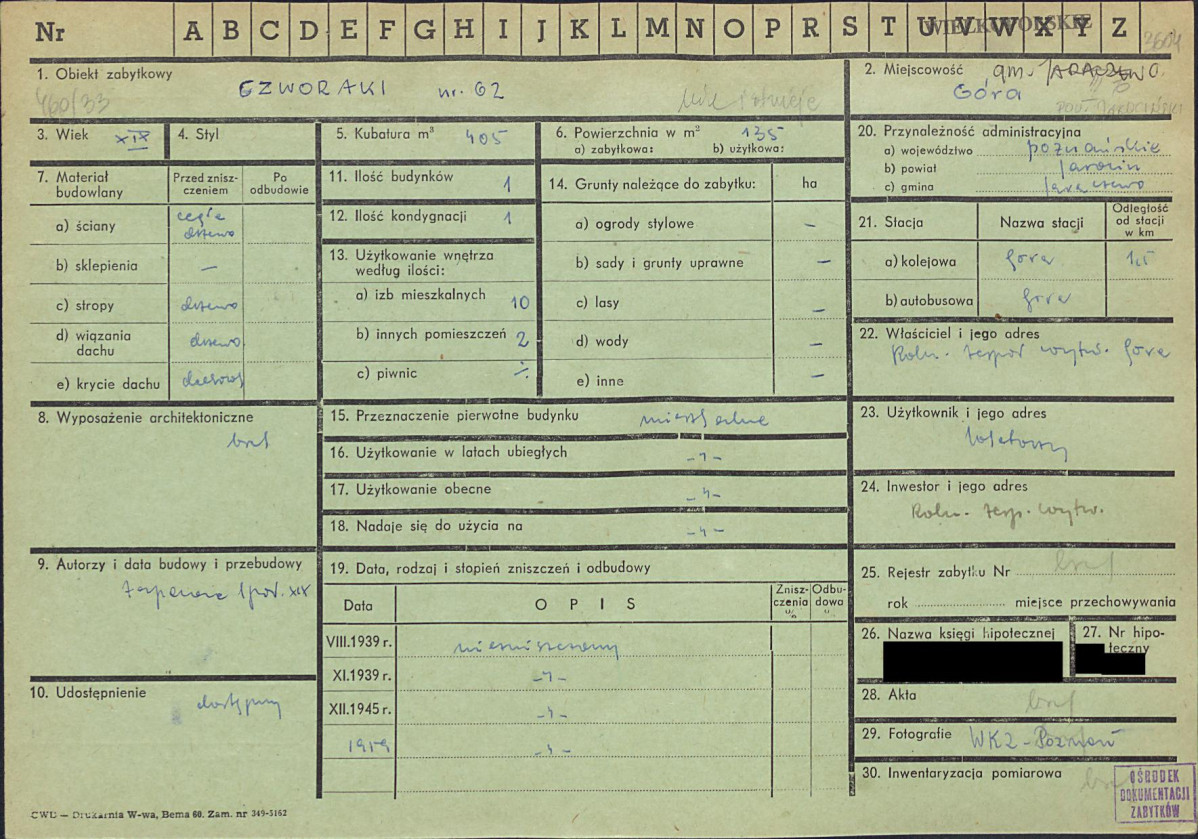 Nr A B C D E F G H I J K L M N O P R S T U V W X Y Z
WIELKOPOLSKIE
2604
1. Obiekt zabytkowy
CZWORAKI nr. 62
460/33
nie istnieje
2. Miejscowość gm. JARACZEWO
GÓRA
pow. JAROCIŃSKI
3. Wiek XIX
4. Styl
5. Kubatura m³ 405
6. Powierzchnia w m² 135
a) zabytkowa: b) użytkowa:
7. Materiał budowlany
Przed zniszczeniem
Po odbudowie
a) ściany cegła
drzewo
b) sklepienia —
c) stropy drzewo
d) wiązania dachu drzewo
e) krycie dachu
8. Wyposażenie architektoniczne
brak
9. Autorzy i data budowy i przebudowy
XIX
10. Udostępnienie
dostępny
11. Ilość budynków 1
12. Ilość kondygnacji 1
13. Użytkowanie wnętrza
według ilości:
a) izb mieszkalnych 10
b) innych pomieszczeń 2
c) piwnic ÷
14. Grunty należące do zabytku: ha
a) ogrody stylowe —
b) sady i grunty uprawne —
c) lasy —
d) wody —
e) inne —
15. Przeznaczenie pierwotne budynku mieszkalne
16. Użytkowanie w latach ubiegłych -"-
17. Użytkowanie obecne -"-
18. Nadaje się do użycia na -"-
19. Data, rodzaj i stopień zniszczeń i odbudowy
Data OPIS Zniszczenia % Odbudowa %
VIII.1939 r. niezniszczony
XI.1939 r. -"-
XII.1945 r. -"-
1959 -"-
20. Przynależność administracyjna
a) województwo poznańskie
b) powiat Jarocin
c) gmina Jaraczewo
21. Stacja Nazwa stacji Odległość od stacji w km
a) kolejowa Góra 1,5
b) autobusowa Góra
22. Właściciel i jego adres
Roln. zespół wytw. Góra
23. Użytkownik i jego adres
lokatorzy
24. Inwestor i jego adres
Roln. zesp. wytw.
25. Rejestr zabytku Nr brak
rok miejsce przechowywania
26. Nazwa księgi hipotecznej
27. Nr hipoteczny
28. Akta brak
29. Fotografie WKZ - Poznań
30. Inwentaryzacja pomiarowa brak
OŚRODEK
DOKUMENTACJI
ZABYTKÓW
CWD — Drukarnia W-wa, Bema 60. Zam. nr 349-5162